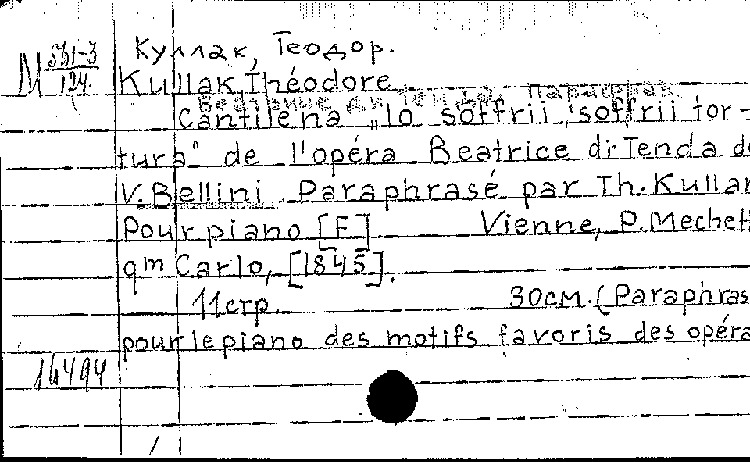 Куллак, Теодор.
М 531-3/124
Kullak, Théodore
Cantilena „Io soffrii, soffrii tor-
tura" de l'opéra Beatrice di Tenda de
V. Bellini Paraphrasé par Th. Kullak
Pour piano [F] Vienne, P. Mechett
qm Carlo, [1845].
11 стр. 30 см. (Paraphras
pour le piano des motifs favoris des opéra
16494